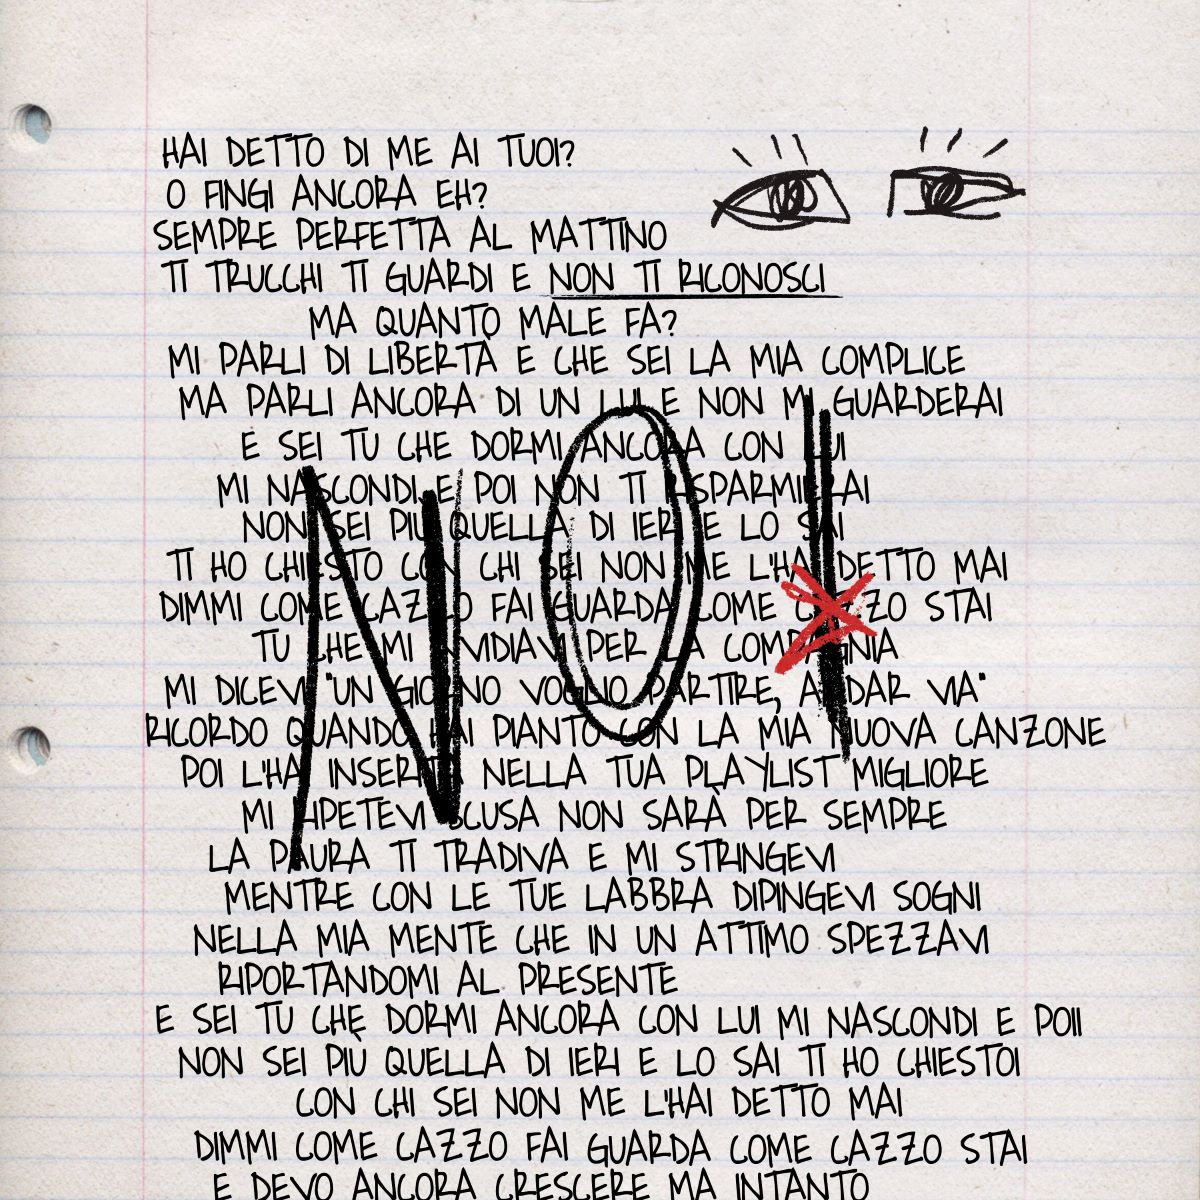 HAI DETTO DI ME AI TUOI?
O FINGI ANCORA EH?
SEMPRE PERFETTA AL MATTINO
TI TRUCCHI TI GUARDI E NON TI RICONOSCI
MA QUANTO MALE FA?
MI PARLI DI LIBERTÀ E CHE SEI LA MIA COMPLICE
MA PARLI ANCORA DI UN LUI E NON MI GUARDERAI
E SEI TU CHE DORMI ANCORA CON LUI
MI NASCONDI E POI NON TI RISPARMIERAI
NON SEI PIÙ QUELLA DI IERI E LO SAI
TI HO CHIESTO CON CHI SEI NON ME L'HAI DETTO MAI
DIMMI COME CAZZO FAI GUARDA COME CAZZO STAI
TU CHE MI INVIDIAVI PER LA COMPAGNIA
MI DICEVI "UN GIORNO VOGLIO PARTIRE, ANDAR VIA"
RICORDO QUANDO HAI PIANTO CON LA MIA NUOVA CANZONE
POI L'HAI INSERITA NELLA TUA PLAYLIST MIGLIORE
MI RIPETEVI SCUSA NON SARÀ PER SEMPRE
LA PAURA TI TRADIVA E MI STRINGEVI
MENTRE CON LE TUE LABBRA DIPINGEVI SOGNI
NELLA MIA MENTE CHE IN UN ATTIMO SPEZZAVI
RIPORTANDOMI AL PRESENTE
E SEI TU CHE DORMI ANCORA CON LUI MI NASCONDI E POII
NON SEI PIÙ QUELLA DI IERI E LO SAI TI HO CHIESTOI
CON CHI SEI NON ME L'HAI DETTO MAI
DIMMI COME CAZZO FAI GUARDA COME CAZZO STAI
E DEVO ANCORA CRESCERE MA INTANTO
NOI